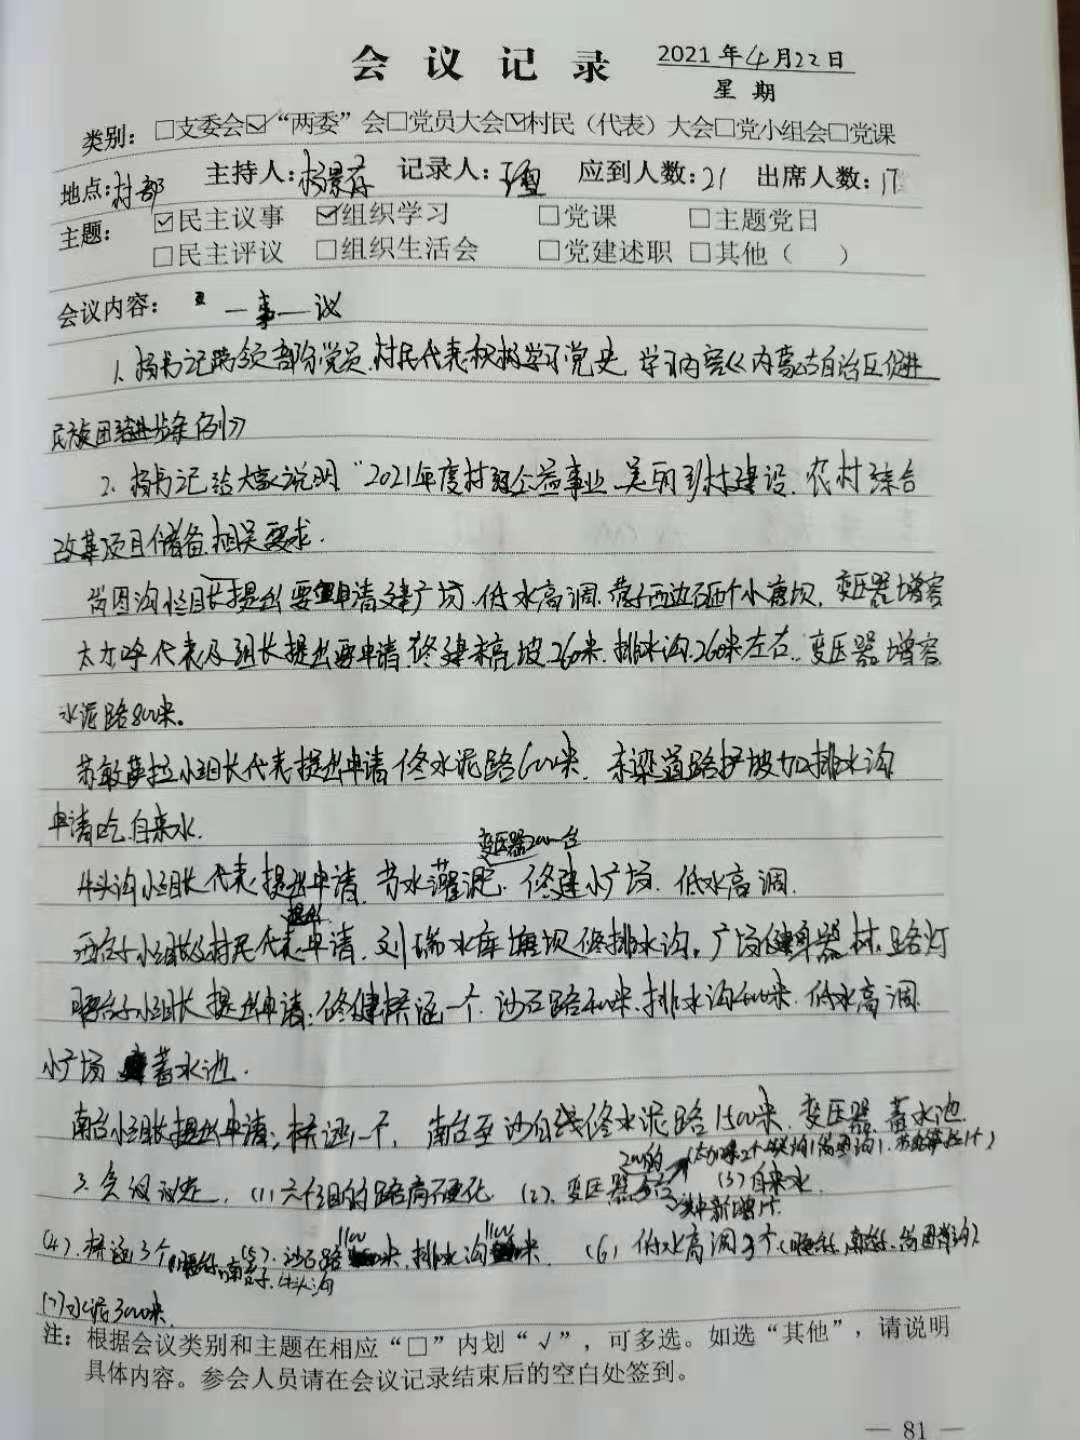 会议记录 2021年4月22日
星期
类别：□支委会☑“两委”会□党员大会☑村民（代表）大会□党小组会□党课
地点：村部 主持人：杨景存 记录人： 应到人数：21 出席人数：17
主题：☑民主议事 ☑组织学习 □党课 □主题党日
□民主评议 □组织生活会 □党建述职 □其他（ ）
会议内容： 一事一议
1、杨书记带领部份党员、村民代表积极学习党史，学习内容《内蒙古自治区促进
民族团结进步条例》
2、杨书记给大家说明“2021年度村级公益事业、美丽乡村建设、农村综合
改革项目储备相关要求.
沟小组长提出要申请建广场、低水高调、西边 个小塘坝，变压器增容
代表及组长提出要申请修建 坡260米、排水沟260米左右、变压器增容
水泥路800米。
苏敏萨拉小组长代表提出申请修水泥路600米，东梁道路护坡加排水沟
申请吃自来水.
变压器200一台
牛头沟小组长代表提出申请 节水灌溉、修建小广场、低水高调.
提出
西台子小组长及村民代表申请，刘瑞水库塘坝修排水沟，广场健身器材、路灯
台子小组长提出申请：修建桥涵一个、沙石路 米、排水沟 米、低水高调
小广场 蓄水池.
南台小组长提出申请；桥涵一个，南台至沙白线修水泥路1500米、变压器、蓄水池
3、会议决定，（1）六个组的路 硬化 （2）、变压器5台 （3）自来水
200的
其中新增1个
（4）、桥涵3个 （5）、沙石路1100米，排水沟1100米. （6）低水高调3个
牛头沟
（7）水泥3000米.
注：根据会议类别和主题在相应“□”内划“√”，可多选。如选“其他”，请说明
具体内容。参会人员请在会议记录结束后的空白处签到。
— 81 —